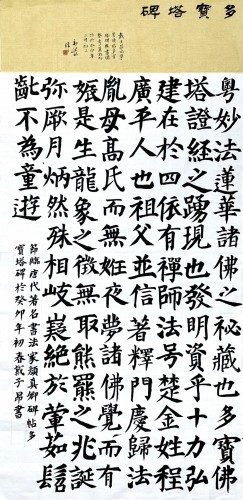 多寶塔碑
粵妙法蓮華諸佛之祕藏也多寶佛
塔證經之踴現也發明資乎十力弘
建在於四依有禪師法号楚金姓程
廣平人也祖父並信著釋門慶歸法
胤母高氏而無妊夜夢諸佛覺而有
娠是生龍象之徵無取熊羆之兆誕
弥厥月炳然殊相岐嶷絕於葷茹髫
齔不為童遊
節臨唐代著名書法家顏真卿碑帖多
寶塔碑於癸卯年初春戴子昂書